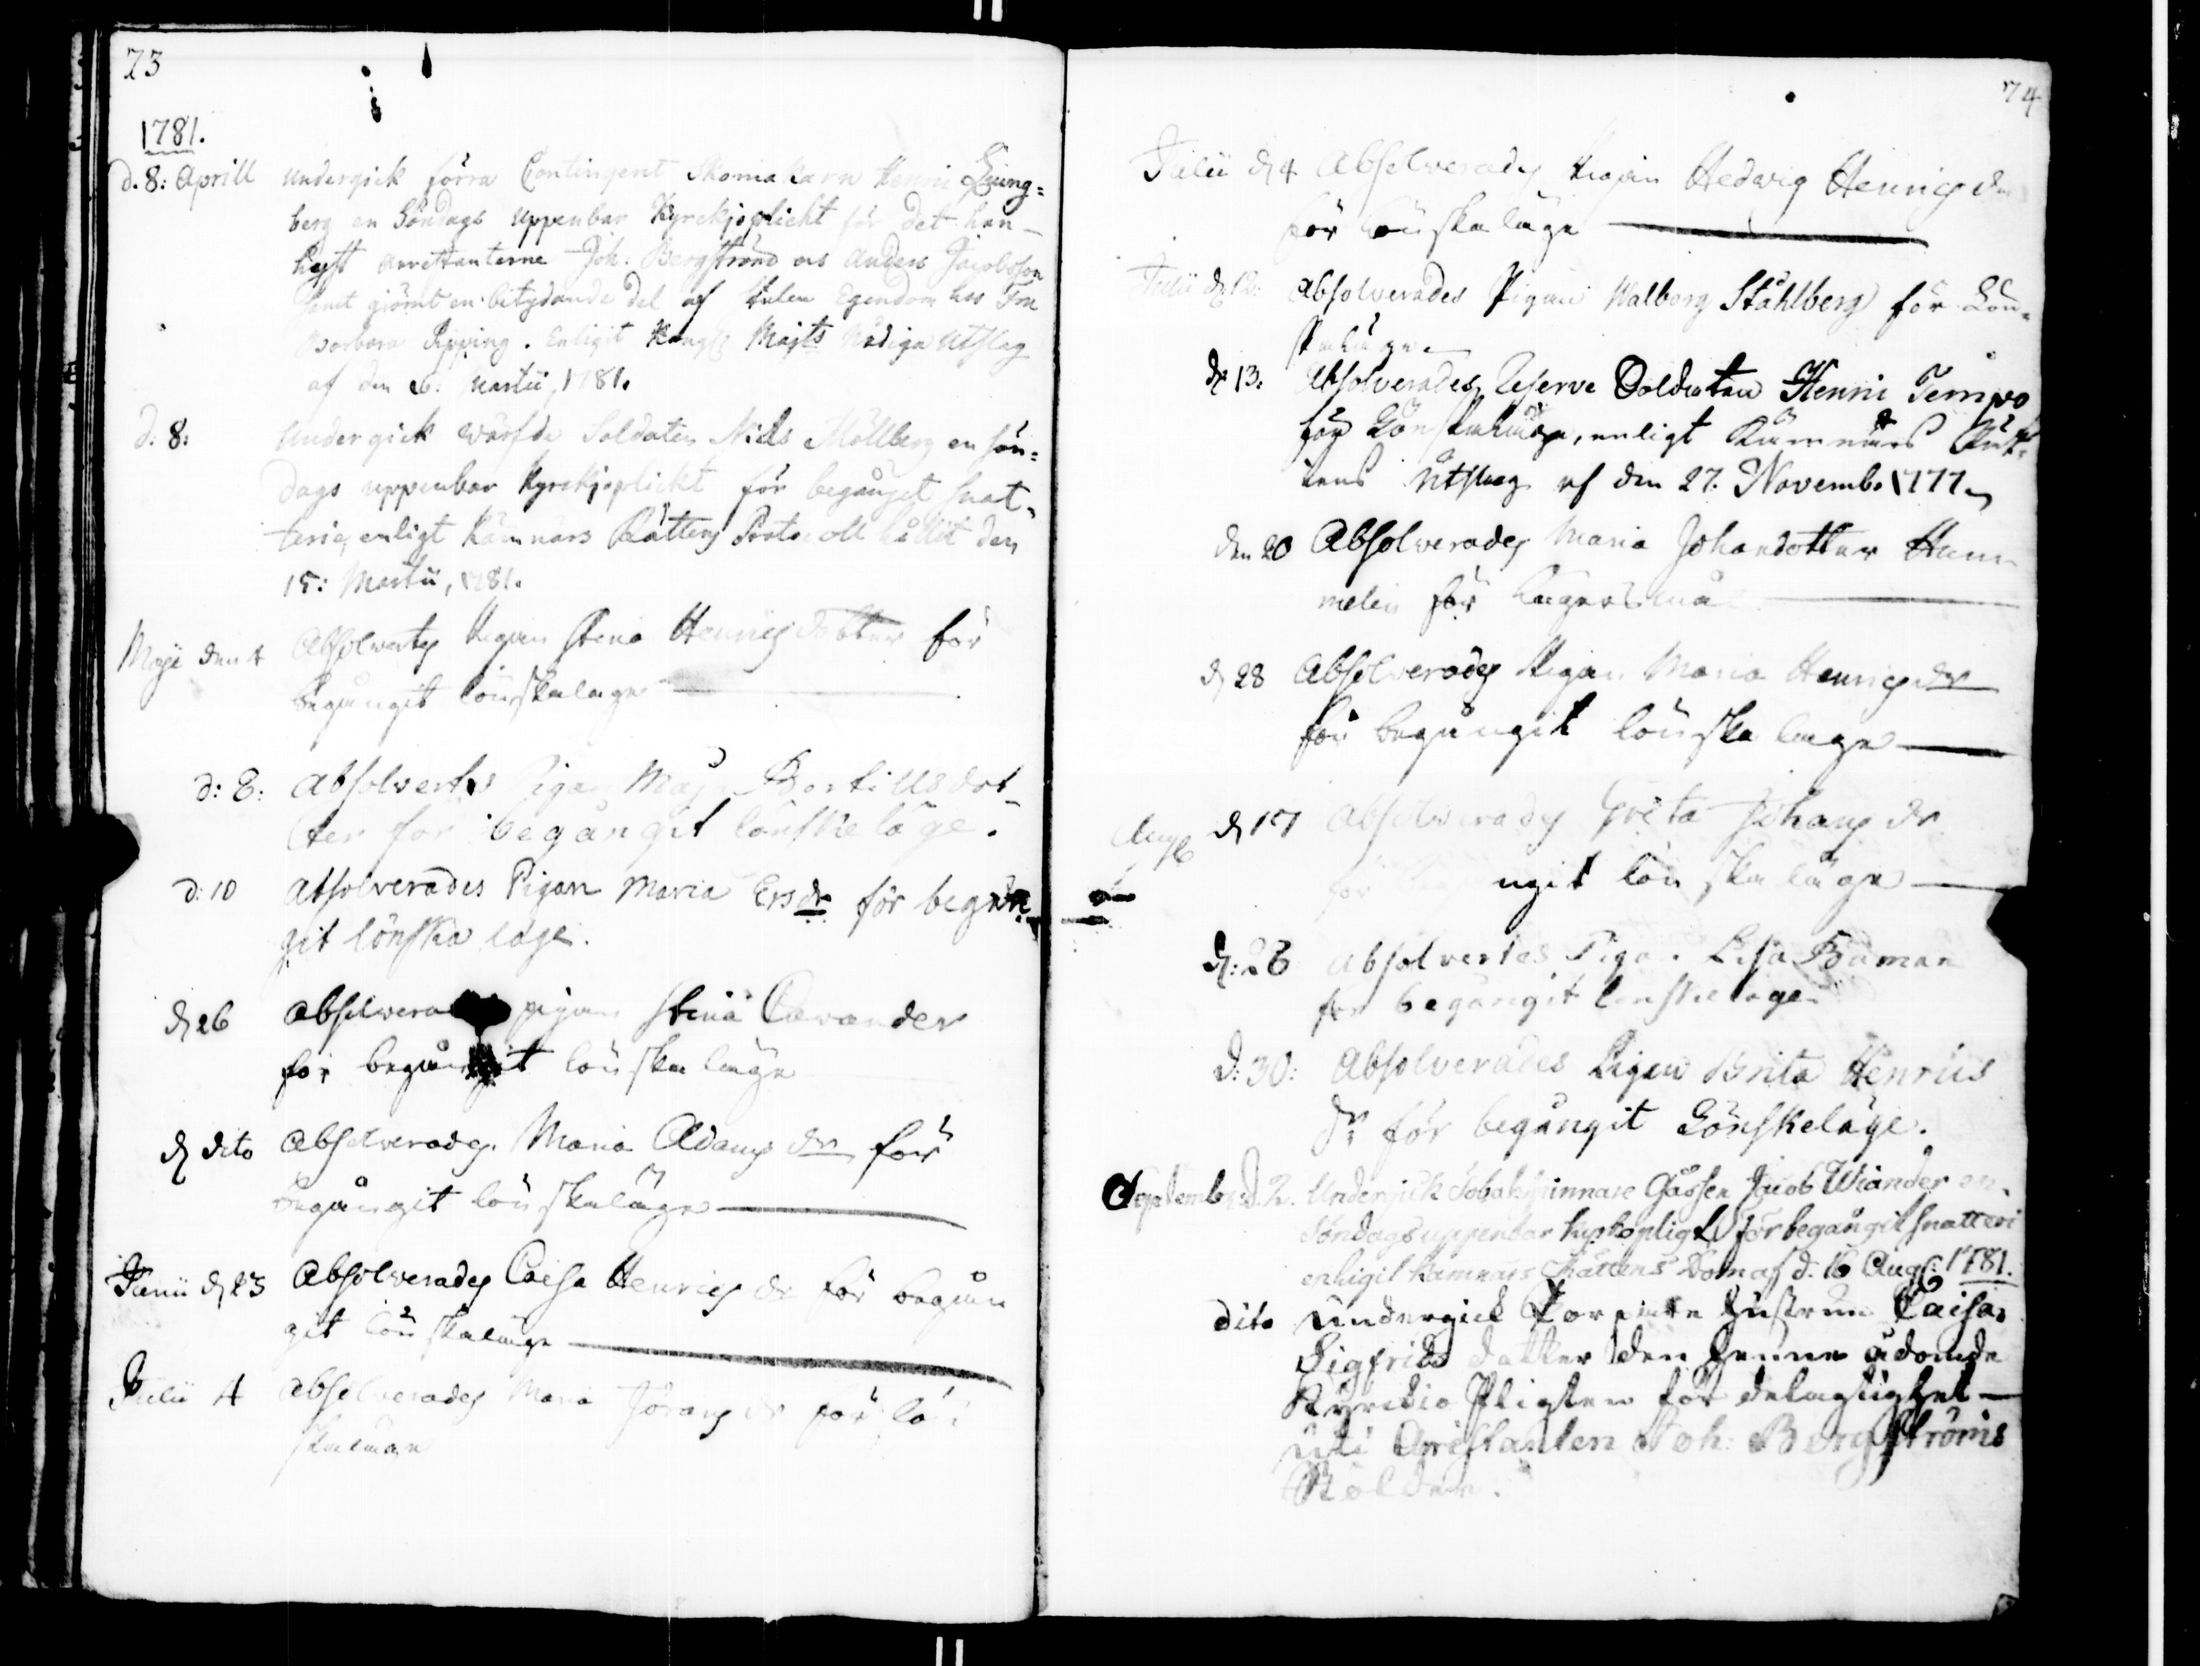 73
1781.
d. 8: Aprill undergick förra Contingent Skomakarn Henric Liung=
berg en Söndags uppenbar Kyrckjoplicht för det han
hyst arrestanterne Joh. Bergström och Anders Jacobsson
samt giömt en betydande del af stulen Egendom hos Fru
Barbara Ripping. Enligit Kongl Majts Nådiga Utslag
af den 26. Martii, 1781.
d. 8: Undergick wärfde Soldaten Nils Möllberg en Sön=
dags uppenbar Kyrckjoplickt för begånget snat=
teri, enligt Kämnärs Rättens Protocoll hållit den
15: Martii, 1781.
Maji den 4 Absolvertes Pigan Stina Henricsdotter för
begångit lönskaläge
d: 8: Absolvertes Pigan Maja Bertillsdot=
ter för begångit lönskeläge.
d: 10 Absolverades Pigan Maria Ersdr för begån
git lönska läge.
d 26 Absolverades pigan Stina Cavander
för begångit lönskaläge
d dito Absolverades Maria Adams dr för
begångit lönskaläge
Junii d 23 Absolverades Caisa Henrics dr för begån
git lönskaläge
Julii 4 Absolverades Maria Jörans dr för lön
skaläge
74
Julii d 4 Absolverades Pigan Hedvig Henrics dr
för lönskaläge
Julii d 12: Absolverades Pigan Walborg Ståhlberg för Lön=
skaläge
d 13: Absolverades Reserve Soldaten Henric Tempo
för Lönskaläge, enligt Kämnärs Rät=
tens Utslag af den 27. Novemb. 1777
den 20 Absolverades Maria Johansdotter Hum
melin för lägersmål
d 28 Absolverades Pigan Maria Henrics dr
för begångit lönska läge
Aug d 17 Absolverades Greta Johans dr
för begångit lönskaläge
d: 26 Absolvertes Pigan Lisa Båman
för begångit lönskeläge
d: 30: Absolverades Pigan Brita Henrics
dr för begångit Lönskeläge.
Septemb: d. 2. Undergick Tobakspinnare Gåssen Jacob Wiander en
Söndags uppenbar kyrkoplight för begångit snatteri
enligit Kämnärs Rättens Dom af d. 16 Aug: 1781.
dito Undergick Hustrun Caisa
Sigfrids dotter den henne ådömde
Kyrckio Pligten för delagtighet
uti Arrestanten Joh: Bergströms
Stölder.